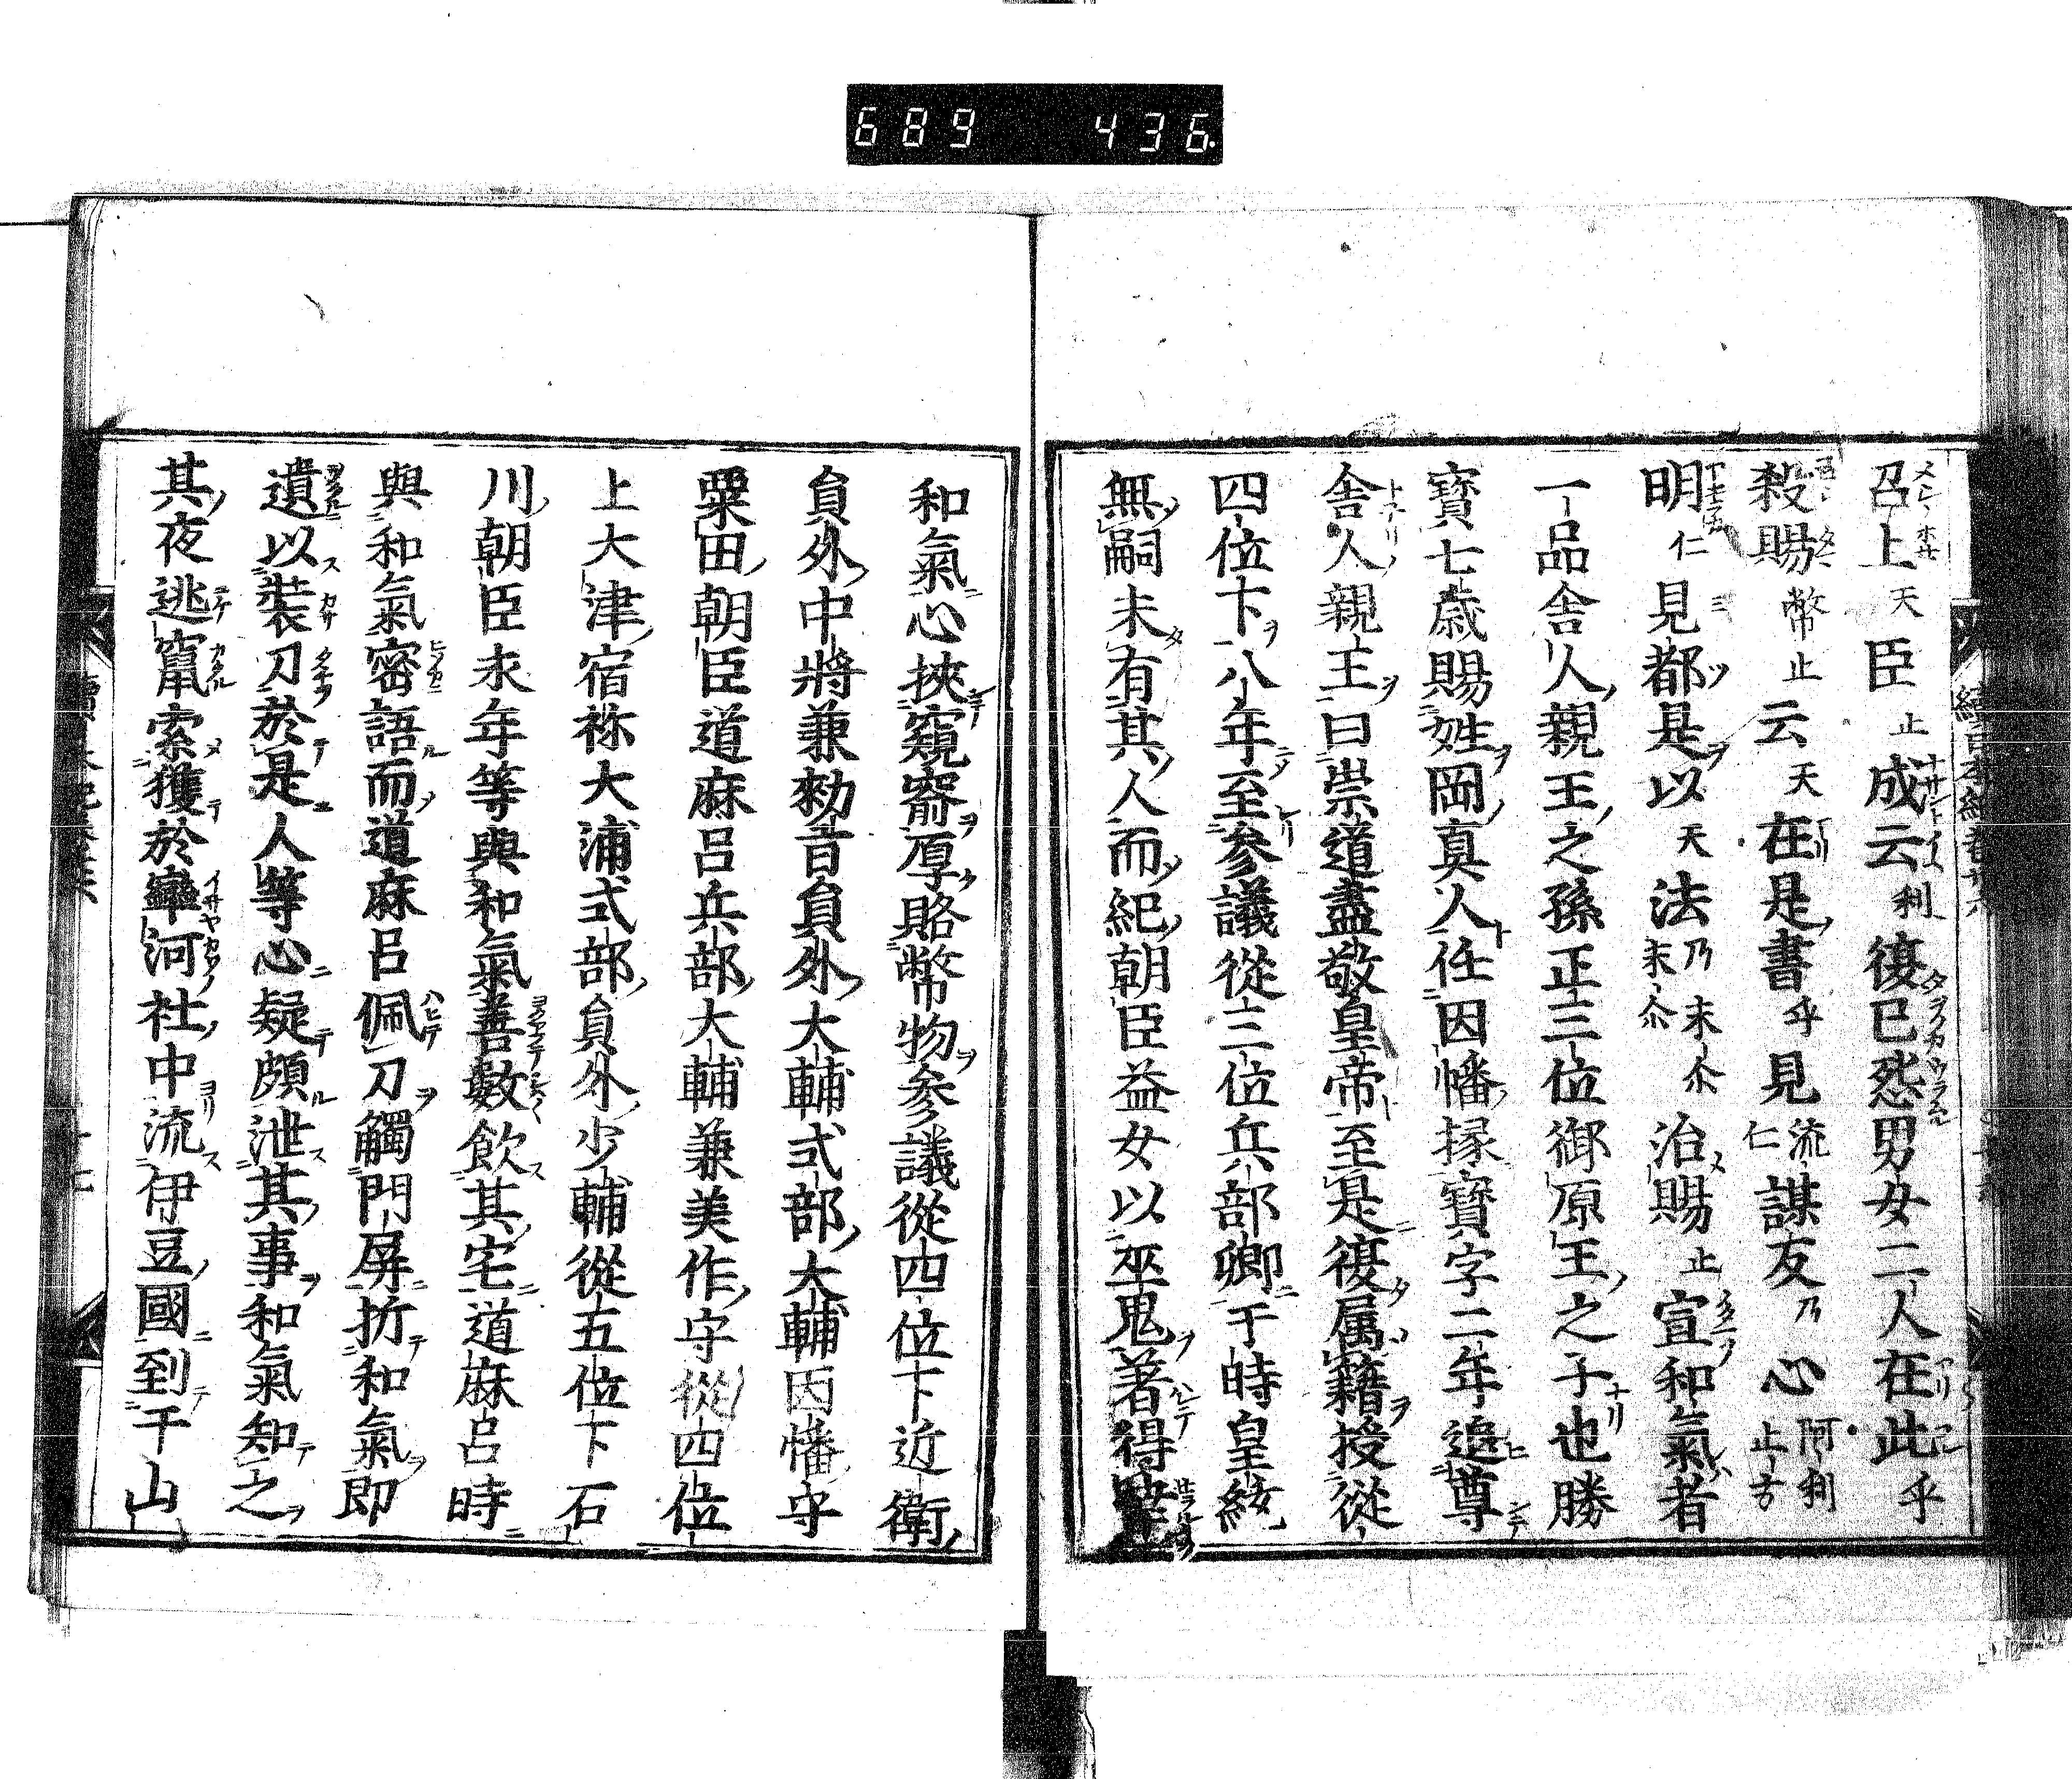 689 436
召上天臣止成云利復己怨男女二人在此乎
殺賜幣止云天在是書乎見流仁謀反乃心阿利止方
明仁見都是以天法乃末爾末爾治賜止宣和氣者
一品舍人親王之孫正三位御原王之子也勝
寶七歲賜姓岡眞人任因幡掾寶字二年追尊
舍人親王曰崇道盡敬皇帝至是復屬籍授從
四位下八年至參議從三位兵部卿于時皇統
無嗣未有其人而紀朝臣益女以巫鬼著得幸
和氣心挾窺窬厚賂幣物參議從四位下近衛
員外中將兼勅旨員外大輔式部大輔因幡守
粟田朝臣道麻呂兵部大輔兼美作守從四位
上大津宿祢大浦式部員外少輔從五位下石
川朝臣永年等與和氣善數飲其宅道麻呂時
與和氣密語而道麻呂佩刀觸門屏折和氣即
遺以裝刀於是人等心疑頗泄其事和氣知之
其夜逃竄索獲於率河社中流伊豆國到于山